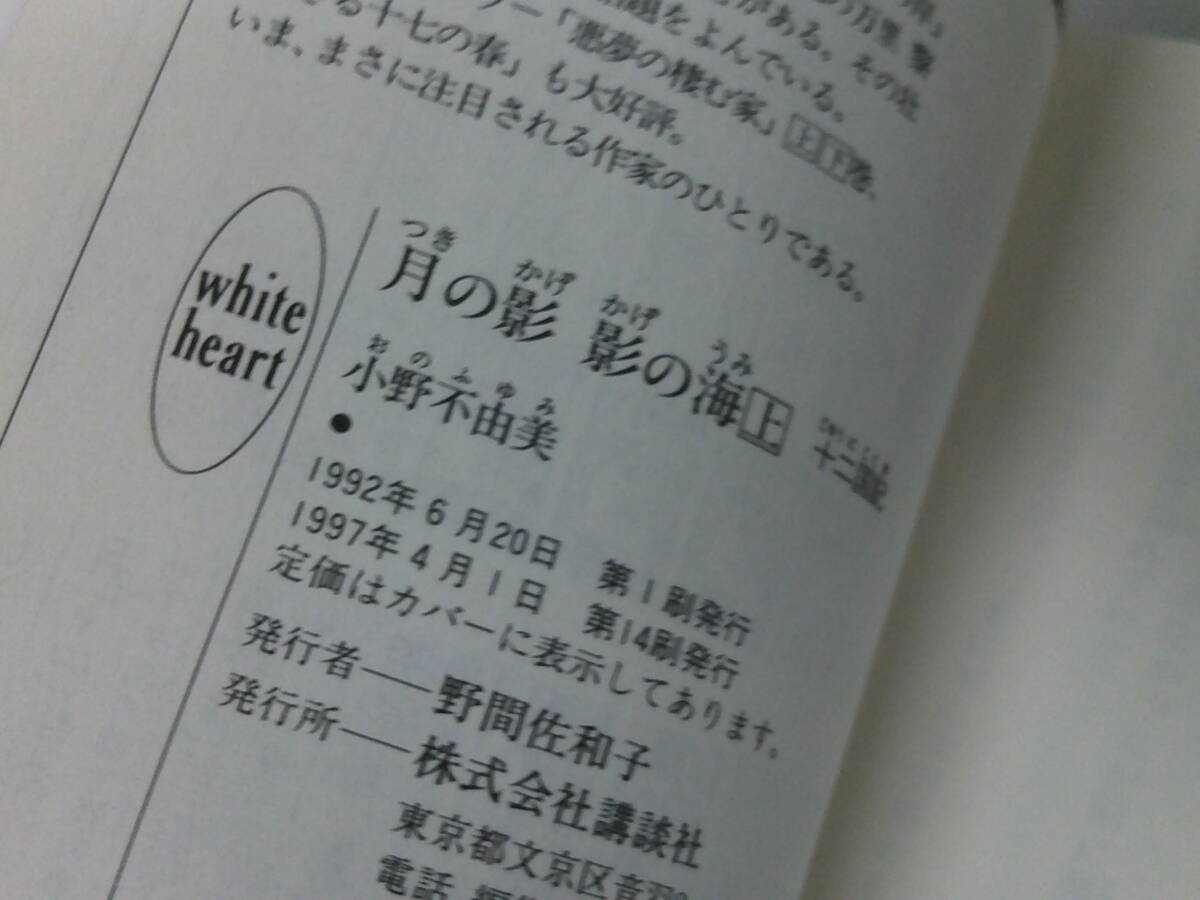 の万里 黎
がある。その他
題をよんでいる。
ー「悪夢の棲む家」上下巻、
る十七の春」も大好評。
いま、まさに注目される作家のひとりである。
white
heart
つき かげ かげ うみ
月の影 影の海 上 十二国記
おのふゆみ
小野不由美
●
1992年6月20日 第1刷発行
1997年4月1日 第14刷発行
定価はカバーに表示してあります。
発行者——野間佐和子
発行所——株式会社講談社
東京都文京区音羽
電話 編